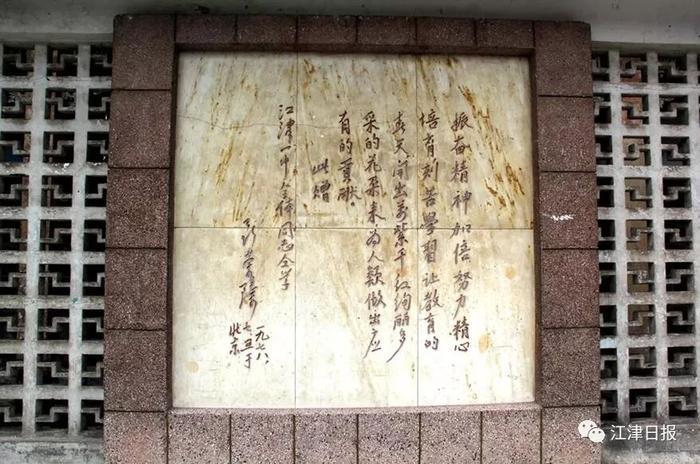 振奋精神加倍努力精心
培育刻苦學習让教育的
春天開出萬紫千红绚丽多
采的花朵来为人類做出应
有的貢献
此赠
江津一中全体同志仝学
聂荣臻
一九七八、
七、五于
北京
江津日报